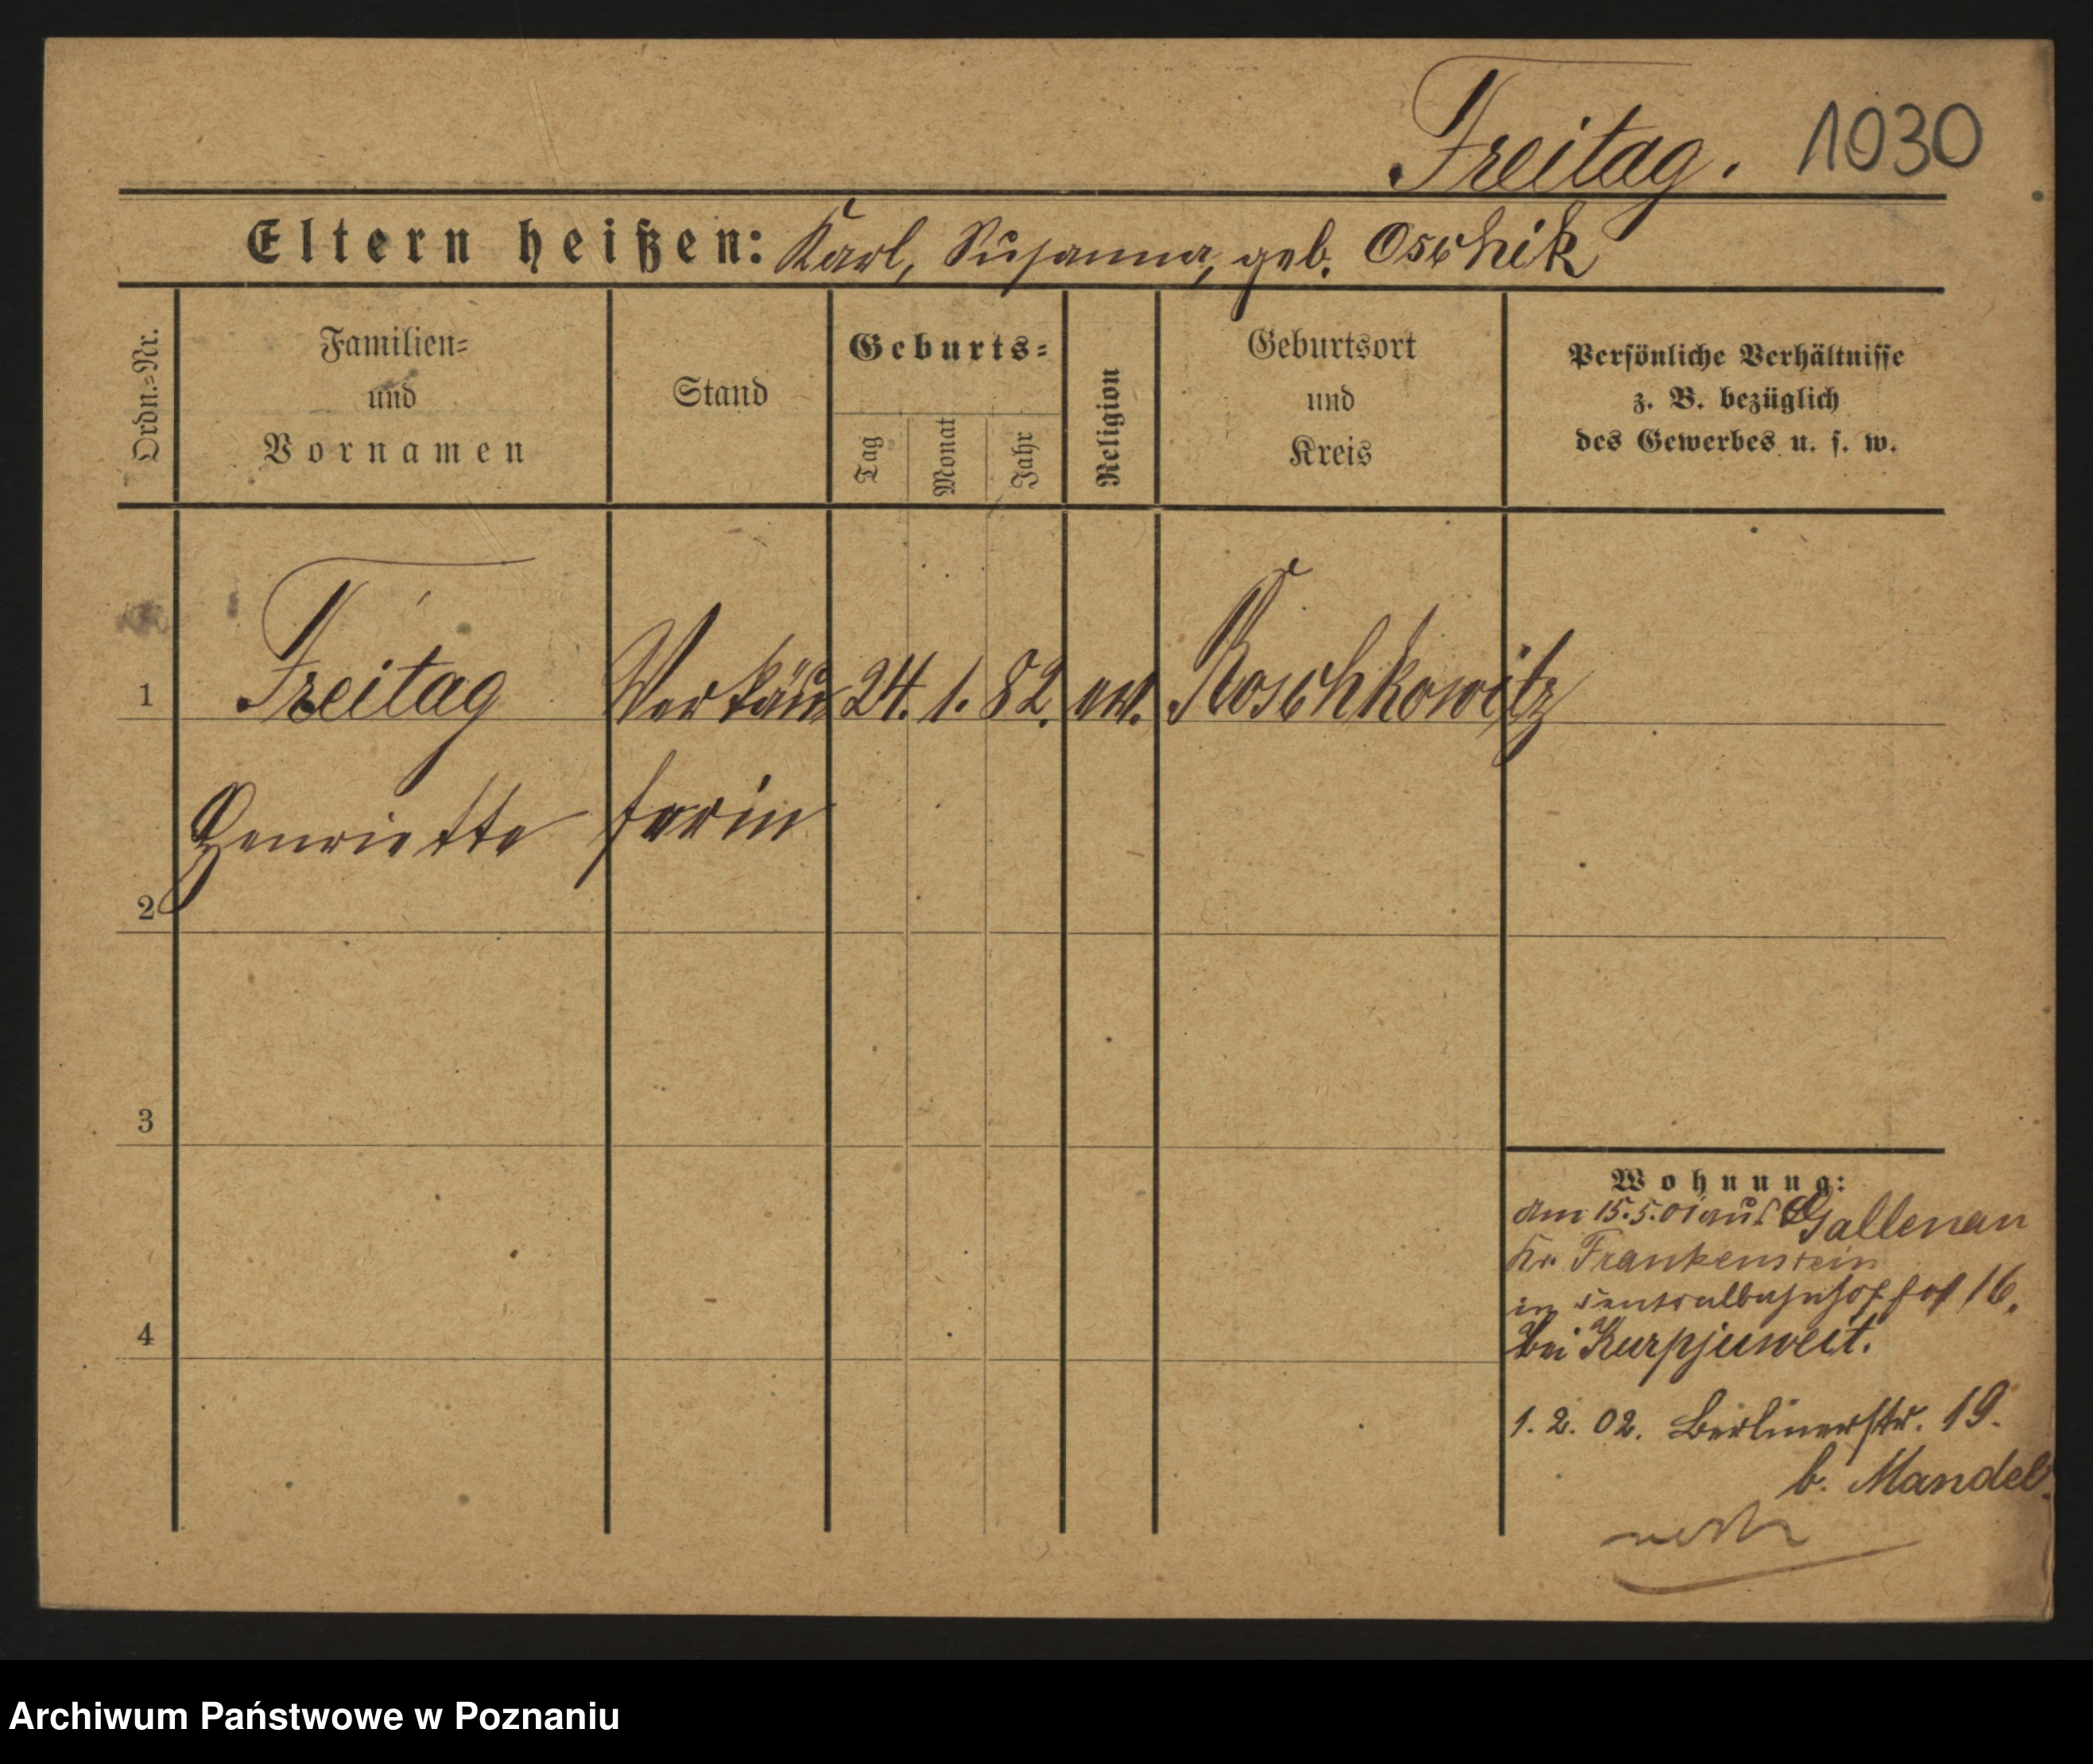 Freitag. 1030
Eltern heißen: Karl, Susanna, geb. Oschik
Ordn.-Nr.
Familien-
und
Vornamen
Stand
Geburts-
Tag
Monat
Jahr
Religion
Geburtsort
und
Kreis
Persönliche Verhältnisse
z. B. bezüglich
des Gewerbes u. s. w.
1 Freitag Verkäu 24. 1. 82. ev. Roschkowitz
Henriette ferin
2
3
4
Wohnung:
Am 15.5.01 aus Gallenau
Kr. Frankenstein
in Centralbahnhof 16.
bei Kurpjuweit.
1. 2. 02. Berlinerstr. 19.
b. Mandel.
Archiwum Państwowe w Poznaniu